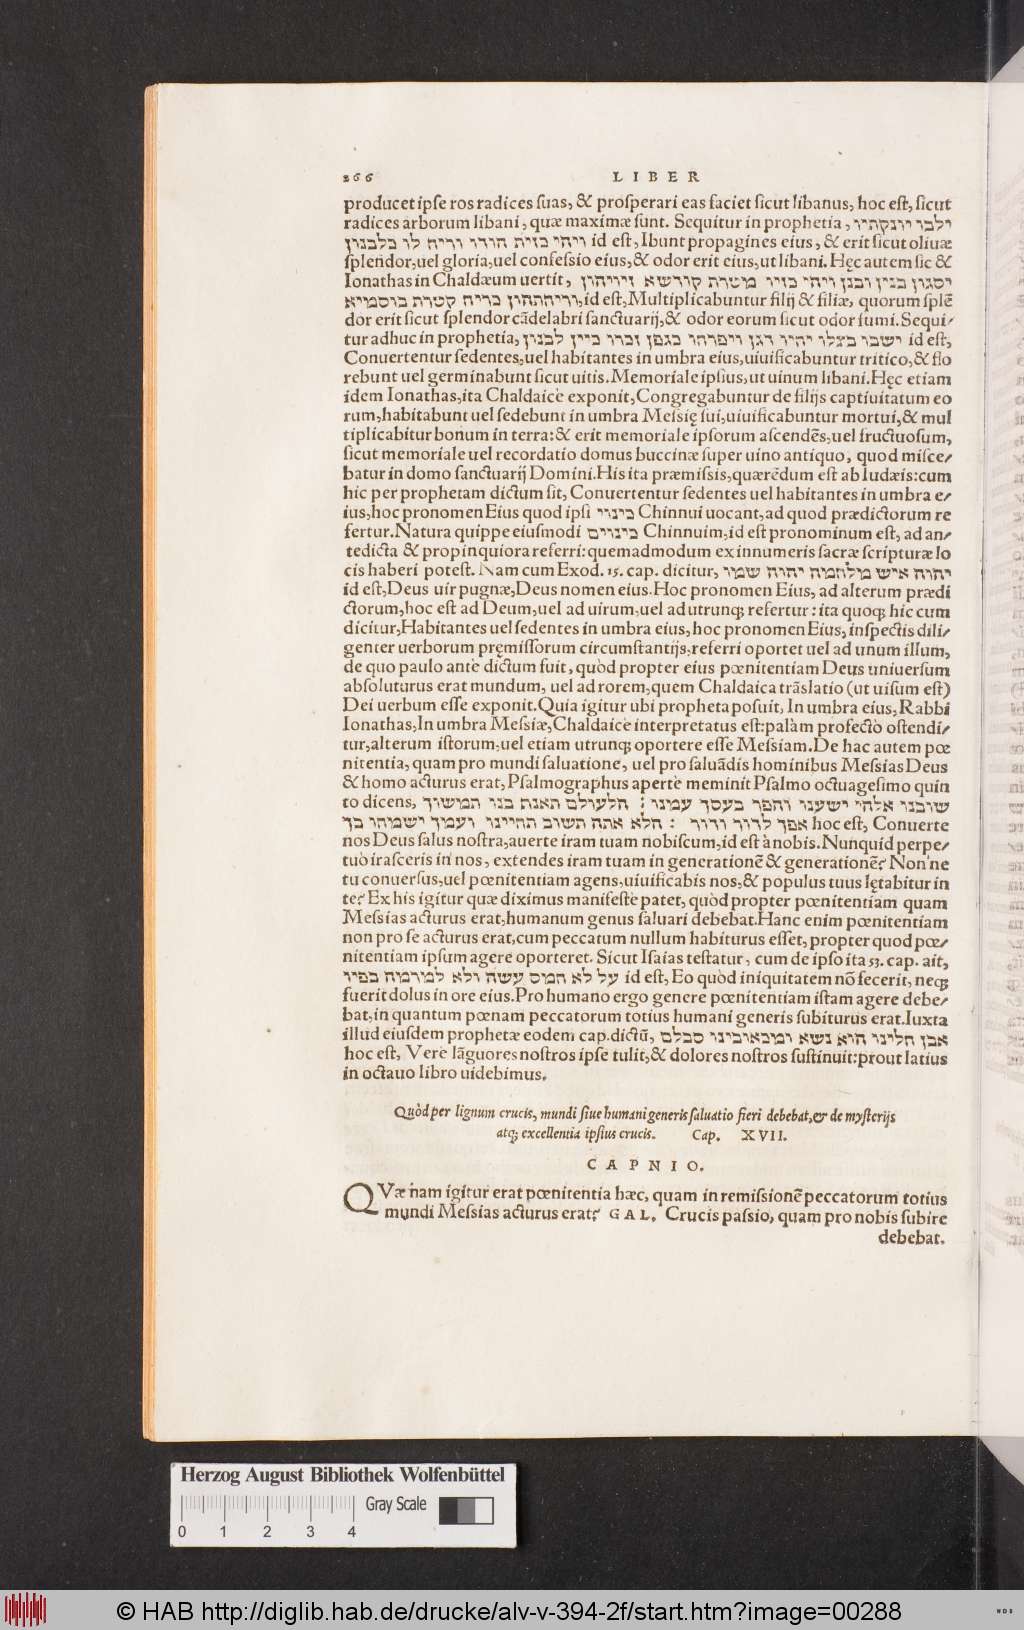 266 LIBER
producet ipse ros radices suas, & prosperari eas faciet sicut libanus, hoc est, sicut
radices arborum libani, quæ maximæ sunt. Sequitur in prophetia, ילכו יונקתיו
ויהי כזית הודו וריח לו כלבנון id est, Ibunt propagines eius, & erit sicut oliuæ
splendor, uel gloria, uel confessio eius, & odor erit eius, ut libani. Hęc autem sic &
Ionathas in Chaldæum uertit, יסגון בנין ובנן ויהי כזיו מנורת קודשא זיויהון
וריחתהון כריח קטרת בוסמיא, id est, Multiplicabuntur filij & filiæ, quorum splē
dor erit sicut splendor cādelabri sanctuarij, & odor eorum sicut odor fumi. Sequi/
tur adhuc in prophetia, ישבו בצלו יהיו דגן ויפרחו כגפן זכרו כיין לבנון id est,
Conuertentur sedentes, uel habitantes in umbra eius, uiuificabuntur tritico, & flo
rebunt uel germinabunt sicut uitis. Memoriale ipsius, ut uinum libani. Hęc etiam
idem Ionathas, ita Chaldaicè exponit, Congregabuntur de filijs captiuitatum eo
rum, habitabunt uel sedebunt in umbra Messię sui, uiuificabuntur mortui, & mul
tiplicabitur bonum in terra: & erit memoriale ipsorum ascendēs, uel fructuosum,
sicut memoriale uel recordatio domus buccinæ super uino antiquo, quod misce/
batur in domo sanctuarij Domini. His ita præmissis, quærēdum est ab Iudæis: cum
hic per prophetam dictum sit, Conuertentur sedentes uel habitantes in umbra e/
ius, hoc pronomen Eius quod ipsi כינוי Chinnui uocant, ad quod prædictorum re
fertur. Natura quippe eiusmodi כינויים Chinnuim, id est pronominum est, ad an/
tedicta & propinquiora referri: quemadmodum ex innumeris sacræ scripturæ lo
cis haberi potest. Nam cum Exod. 15. cap. dicitur, יהוה איש מלחמה יהוה שמו
id est, Deus uir pugnæ, Deus nomen eius. Hoc pronomen Eius, ad alterum prædi
ctorum, hoc est ad Deum, uel ad uirum, uel ad utrunq; refertur: ita quoq; hic cum
dicitur, Habitantes uel sedentes in umbra eius, hoc pronomen Eius, inspectis dili/
genter uerborum pręmissorum circumstantijs, referri oportet uel ad unum illum,
de quo paulo antè dictum fuit, quòd propter eius pœnitentiam Deus uniuersum
absoluturus erat mundum, uel ad rorem, quem Chaldaica trāslatio (ut uisum est)
Dei uerbum esse exponit. Quia igitur ubi propheta posuit, In umbra eius, Rabbi
Ionathas, In umbra Messiæ, Chaldaicè interpretatus est: palàm profectò ostendi/
tur, alterum istorum, uel etiam utrunq; oportere esse Messiam. De hac autem pœ
nitentia, quam pro mundi saluatione, uel pro saluādis hominibus Messias Deus
& homo acturus erat, Psalmographus apertè meminit Psalmo octuagesimo quin
to dicens, שובנו אלהי ישענו והפר כעסך עמנו : הלעולם תאנף בנו תמשוך
אפך לדור ודור : הלא אתה תשוב תחיינו ועמך ישמחו בך hoc est, Conuerte
nos Deus salus nostra, auerte iram tuam nobiscum, id est à nobis. Nunquid perpe/
tuò irasceris in nos, extendes iram tuam in generationē & generationē? Nonne
tu conuersus, uel pœnitentiam agens, uiuificabis nos, & populus tuus lętabitur in
te? Ex his igitur quæ diximus manifestè patet, quòd propter pœnitentiam quam
Messias acturus erat, humanum genus saluari debebat. Hanc enim pœnitentiam
non pro se acturus erat, cum peccatum nullum habiturus esset, propter quod pœ/
nitentiam ipsum agere oporteret. Sicut Isaias testatur, cum de ipso ita 53. cap. ait,
על לא חמס עשה ולא למרמה בפיו id est, Eo quòd iniquitatem nō fecerit, neq;
fuerit dolus in ore eius. Pro humano ergo genere pœnitentiam istam agere debe/
bat, in quantum pœnam peccatorum totius humani generis subiturus erat. Iuxta
illud eiusdem prophetæ eodem cap. dictū, אכן חלינו הוא נשא ומכאובינו סבלם
hoc est, Verè lāguores nostros ipse tulit, & dolores nostros sustinuit: prout latius
in octauo libro uidebimus.
Quòd per lignum crucis, mundi siue humani generis saluatio fieri debebat, & de mysterijs
atq; excellentia ipsius crucis. Cap. XVII.
CAPNIO.
QVæ nam igitur erat pœnitentia hæc, quam in remissionē peccatorum totius
mundi Messias acturus erat? GAL. Crucis passio, quam pro nobis subire
debebat.
Herzog August Bibliothek Wolfenbüttel
Gray Scale
0 1 2 3 4
© HAB http://diglib.hab.de/drucke/alv-v-394-2f/start.htm?image=00288